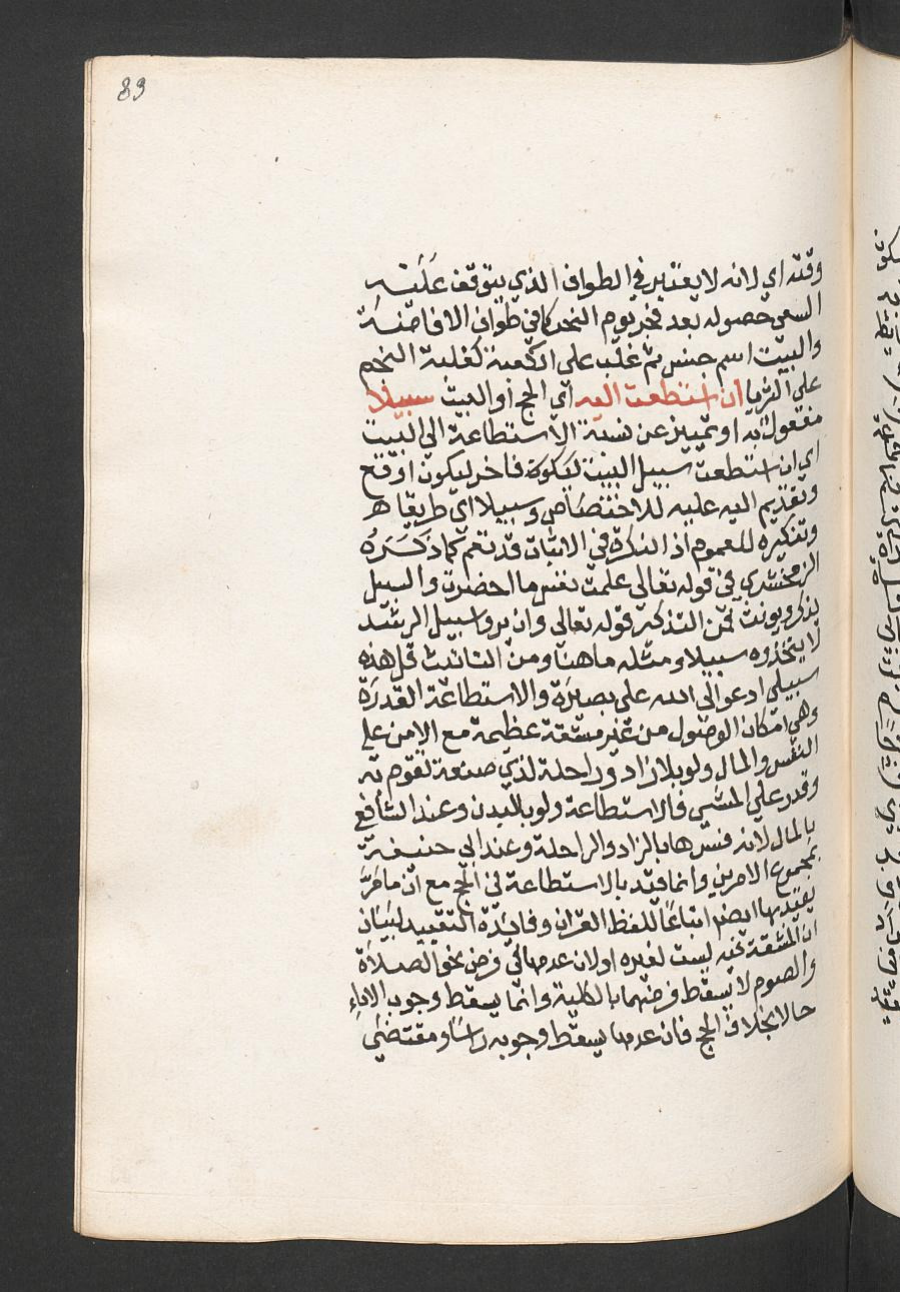 89
وقته اي لانه لا يعتبر في الطواف الذي يتوقف عليه
السعي حصوله بعد فجر يوم النحر كما في طواف الافاضة
والبيت اسم جنس ثم غلب على الكعبة كغلبة النجم
على الثريا ان استطعت اليه اي الحج او البيت سبيلا
مفعول به او تمييز عن نسبة الاستطاعة الى البيت
اي ان استطعت سبيل البيت ليكون فاخر ليكون اوقع
وتقديم اليه عليه للاختصاص وسبيلا اي طريقا
وتنكيره للعموم اذ النكرة في الاثبات قد تعم كما ذكره
الزمخشري في قوله تعالى علمت نفس ما احضرت والسبيل
يذكر ويونث فمن التذكير قوله تعالى وان يروا سبيل الرشد
لا يتخذوه سبيلا ومثله ما هنا ومن التانيث قل هذه
سبيلي ادعو الى الله على بصيرة والاستطاعة القدرة
وهي امكان الوصول من غير مشقة عظيمة مع الامن على
النفس والمال ولو بلا زاد وراحلة لذي صنعة تقوم به
وقدر على المشي فالاستطاعة ولو بالبدن وعند الشافعي
بالمال لانه فسرها بالزاد والراحلة وعند ابي حنيفة
بمجموع الامرين وانما قيد بالاستطاعة في الحج مع ان ما مر
يقيد بها ايضا اتباعا للفظ القران وفائدة التقييد لبيان
ان المشقة فيه ليست لغيره او لان عدمها في فرض نحو الصلاة
والصوم لا يسقط فرضهما بالكلية وانما يسقط وجوب الاداء
حالا بخلاف الحج فان عدمها يسقط وجوبه راسا ومقتضى